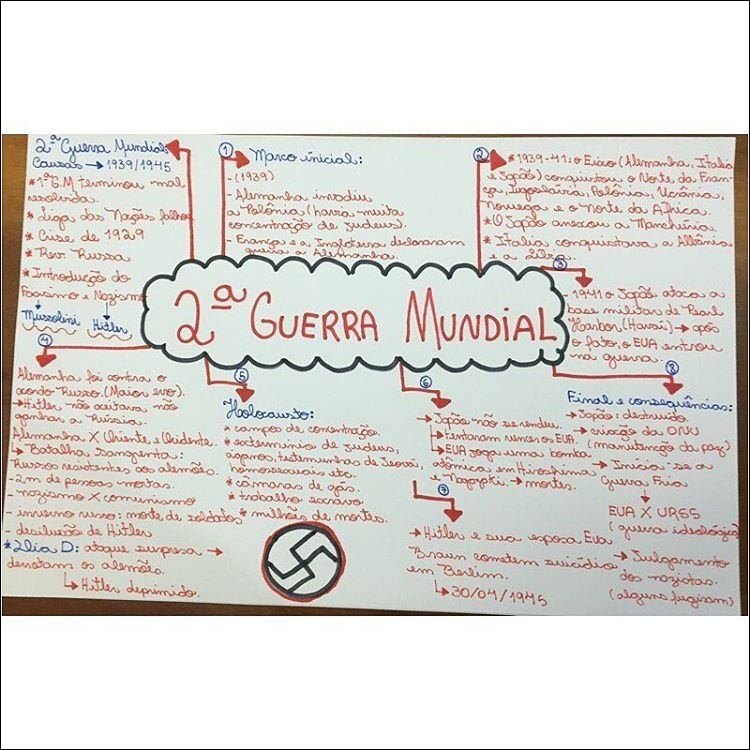 2ª Guerra Mundial
Causas → 1939/1945
* 1ª G.M terminou mal
resolvida.
* Liga das Nações falhou
* Crise de 1929
* Rev. Russa
* Introdução do
Fascismo e Nazismo
Mussolini Hitler
1 Marco inicial:
- (1939)
- Alemanha invadiu
a Polônia (havia muita
concentração de judeus).
- França e a Inglaterra declararam
guerra a Alemanha.
2 * 1939-41: o Eixo (Alemanha, Itália
e Japão) conquistou o Norte da Fran-
ça, Iugoslávia, Polônia, Ucrânia,
Noruega e o Norte da África.
* O Japão anexou a Manchúria.
* Itália conquistava a Albânia
e a Líbia.
3
- 1941 o Japão ataca a
base militar de Pearl
Harbor (Havaí) → após
o fato, o EUA entrou
na guerra.
2ª GUERRA MUNDIAL
4
Alemanha foi contra o
acordo Russo. (Maior erro).
→ Hitler não aceitava não
ganhar a Rússia.
Alemanha X Oriente e Ocidente.
↳ Batalha sangrenta:
Russos resistentes aos alemães.
- 2m de pessoas mortas.
- nazismo X comunismo
- inverno russo: morte de soldados
- desilusão de Hitler
* Dia D: ataque surpresa →
derrotam os alemães.
↳ Hitler deprimido.
5
Holocausto:
* campos de concentração.
* extermínio de judeus,
ciganos, testemunhas de Jeová,
homossexuais etc.
* câmaras de gás.
* trabalho escravo
* milhões de mortes.
6
→ Japão não se rendeu.
↳ Tentaram vencer os EUA.
↳ EUA joga uma bomba
atômica em Hiroshima
e Nagazaki. → mortes.
7
→ Hitler e sua esposa Eva
Braun cometem suicídio
em Berlim.
↳ 30/04/1945
8
Final e consequências:
→ Japão: destruído
→ criação da ONU
(manutenção da paz)
→ Inicia-se a
Guerra Fria
EUA X URSS
(guerra ideológica)
→ Julgamento
dos nazistas.
(alguns fugiram)